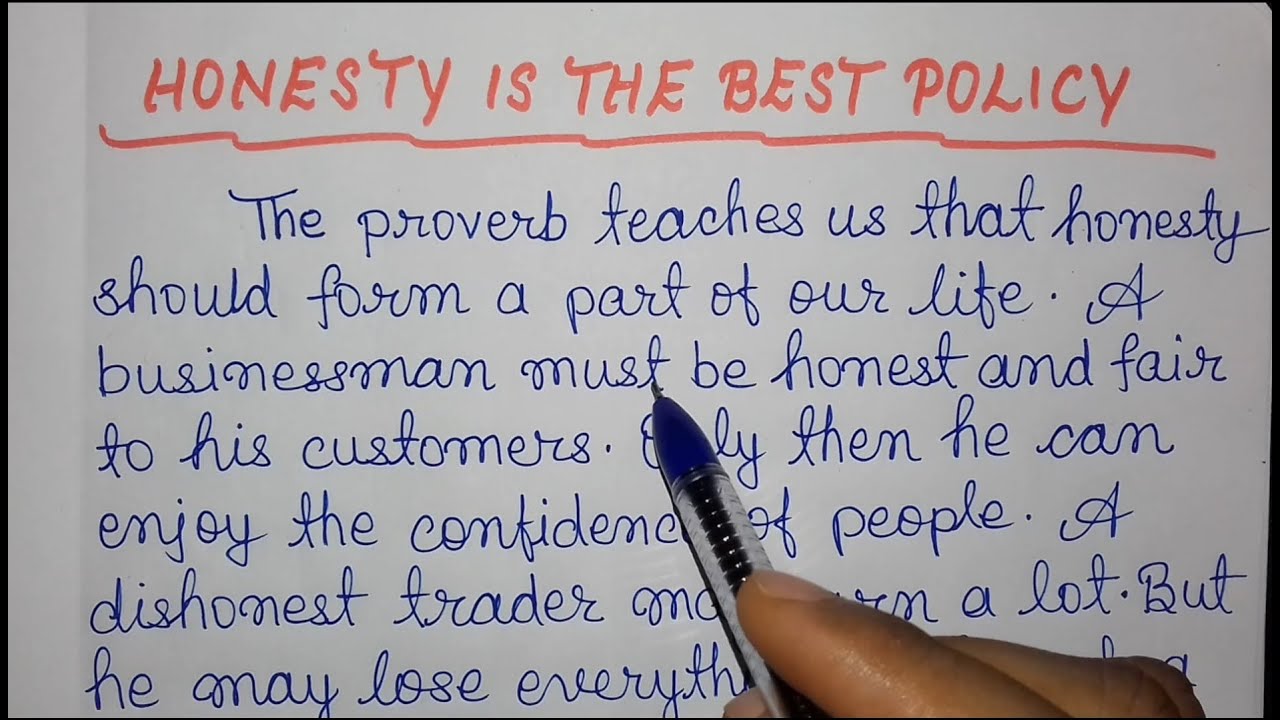 HONESTY IS THE BEST POLICY
The proverb teaches us that honesty
should form a part of our life. A
businessman must be honest and fair
to his customers. Only then he can
enjoy the confidence of people. A
dishonest trader may earn a lot. But
he may lose